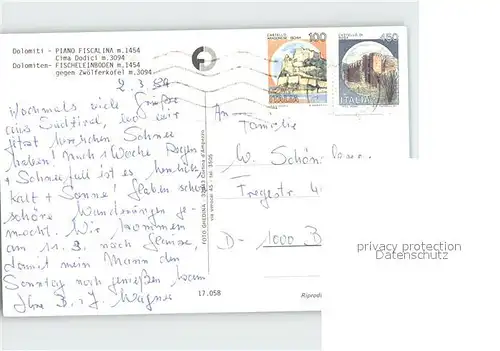 Dolomiti - PIANO FISCALINA m.1454
Cima Dodici m.3094
Dolomiten- FISCHELEINBODEN m.1454
gegen Zwölferkofel m.3094
2.3.89
Nochmals viele Grüße
aus Südtirol, wo wir
jetzt herrlichen Schnee
haben! Nach 1 Woche Regen
+ Schneefall ist es herrlich
kalt + Sonne! Haben schon
schöne Wanderungen ge-
macht. Wir kommen
am 11.3. nach Hause,
damit mein Mann den
Sonntag noch genießen kann
Ihre B. + J. Wagner
FOTO GHEDINA - 32043 Cortina d'Ampezzo
17.058
CASTELLO
100
CASTELLO DI
450
ITALIA
ITALIA
An
Familie
W. Schön
D- 1000 B
Riprod
privacy protection
Datenschutz